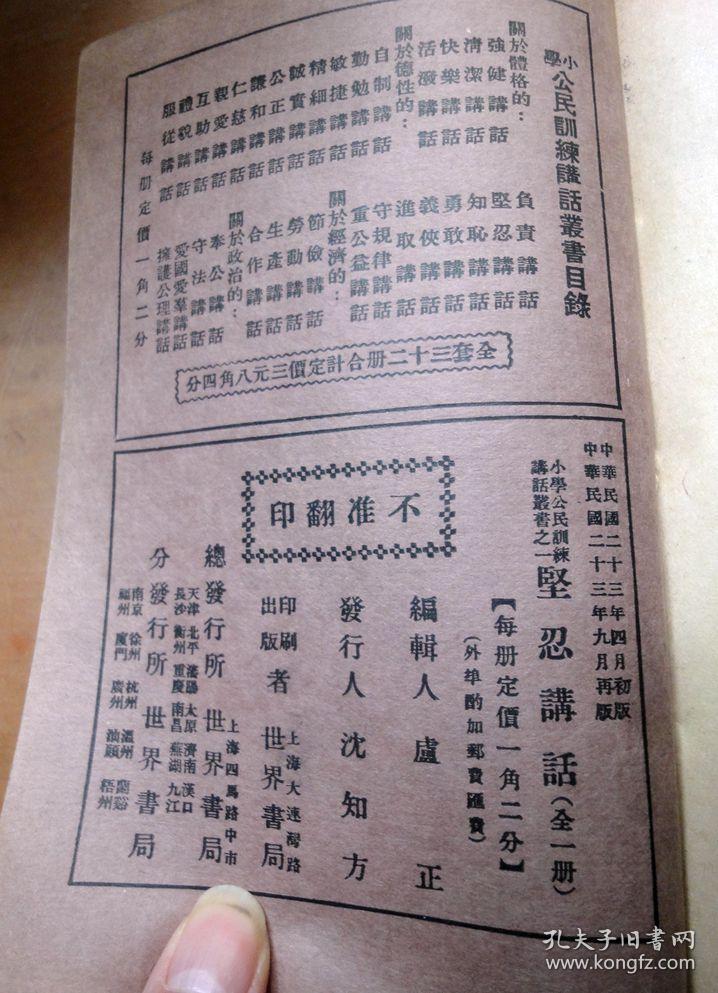 小學公民訓練講話叢書目錄
關於體格的：
強健講話
清潔講話
快樂講話
活潑講話
關於德性的：
自制講話
勤勉講話
敏捷講話
精細講話
誠實講話
公正講話
謙和講話
仁慈講話
親愛講話
互助講話
禮貌講話
服從講話
負責講話
堅忍講話
知恥講話
勇敢講話
義俠講話
進取講話
守規律講話
重公益講話
關於經濟的：
節儉講話
勞動講話
生產講話
合作講話
關於政治的：
奉公講話
守法講話
愛國愛羣講話
擁護公理講話
每册定價一角二分
全套三十二册合計定價三元八角四分
中華民國二十三年四月初版
中華民國二十三年九月再版
小學公民訓練講話叢書之一
堅忍講話（全一册）
【每册定價一角二分】
（外埠酌加郵費匯費）
不准翻印
編輯人 盧正
發行人 沈知方
印刷出版者 上海大連灣路 世界書局
總發行所 上海四馬路中市 世界書局
天津 北平 瀋陽 太原 濟南 漢口
長沙 衡州 重慶 南昌 蕪湖 九江
分發行所 世界書局
南京 徐州 杭州 溫州 蘭谿
福州 廈門 廣州 汕頭 梧州
孔夫子旧书网
www.kongfz.com